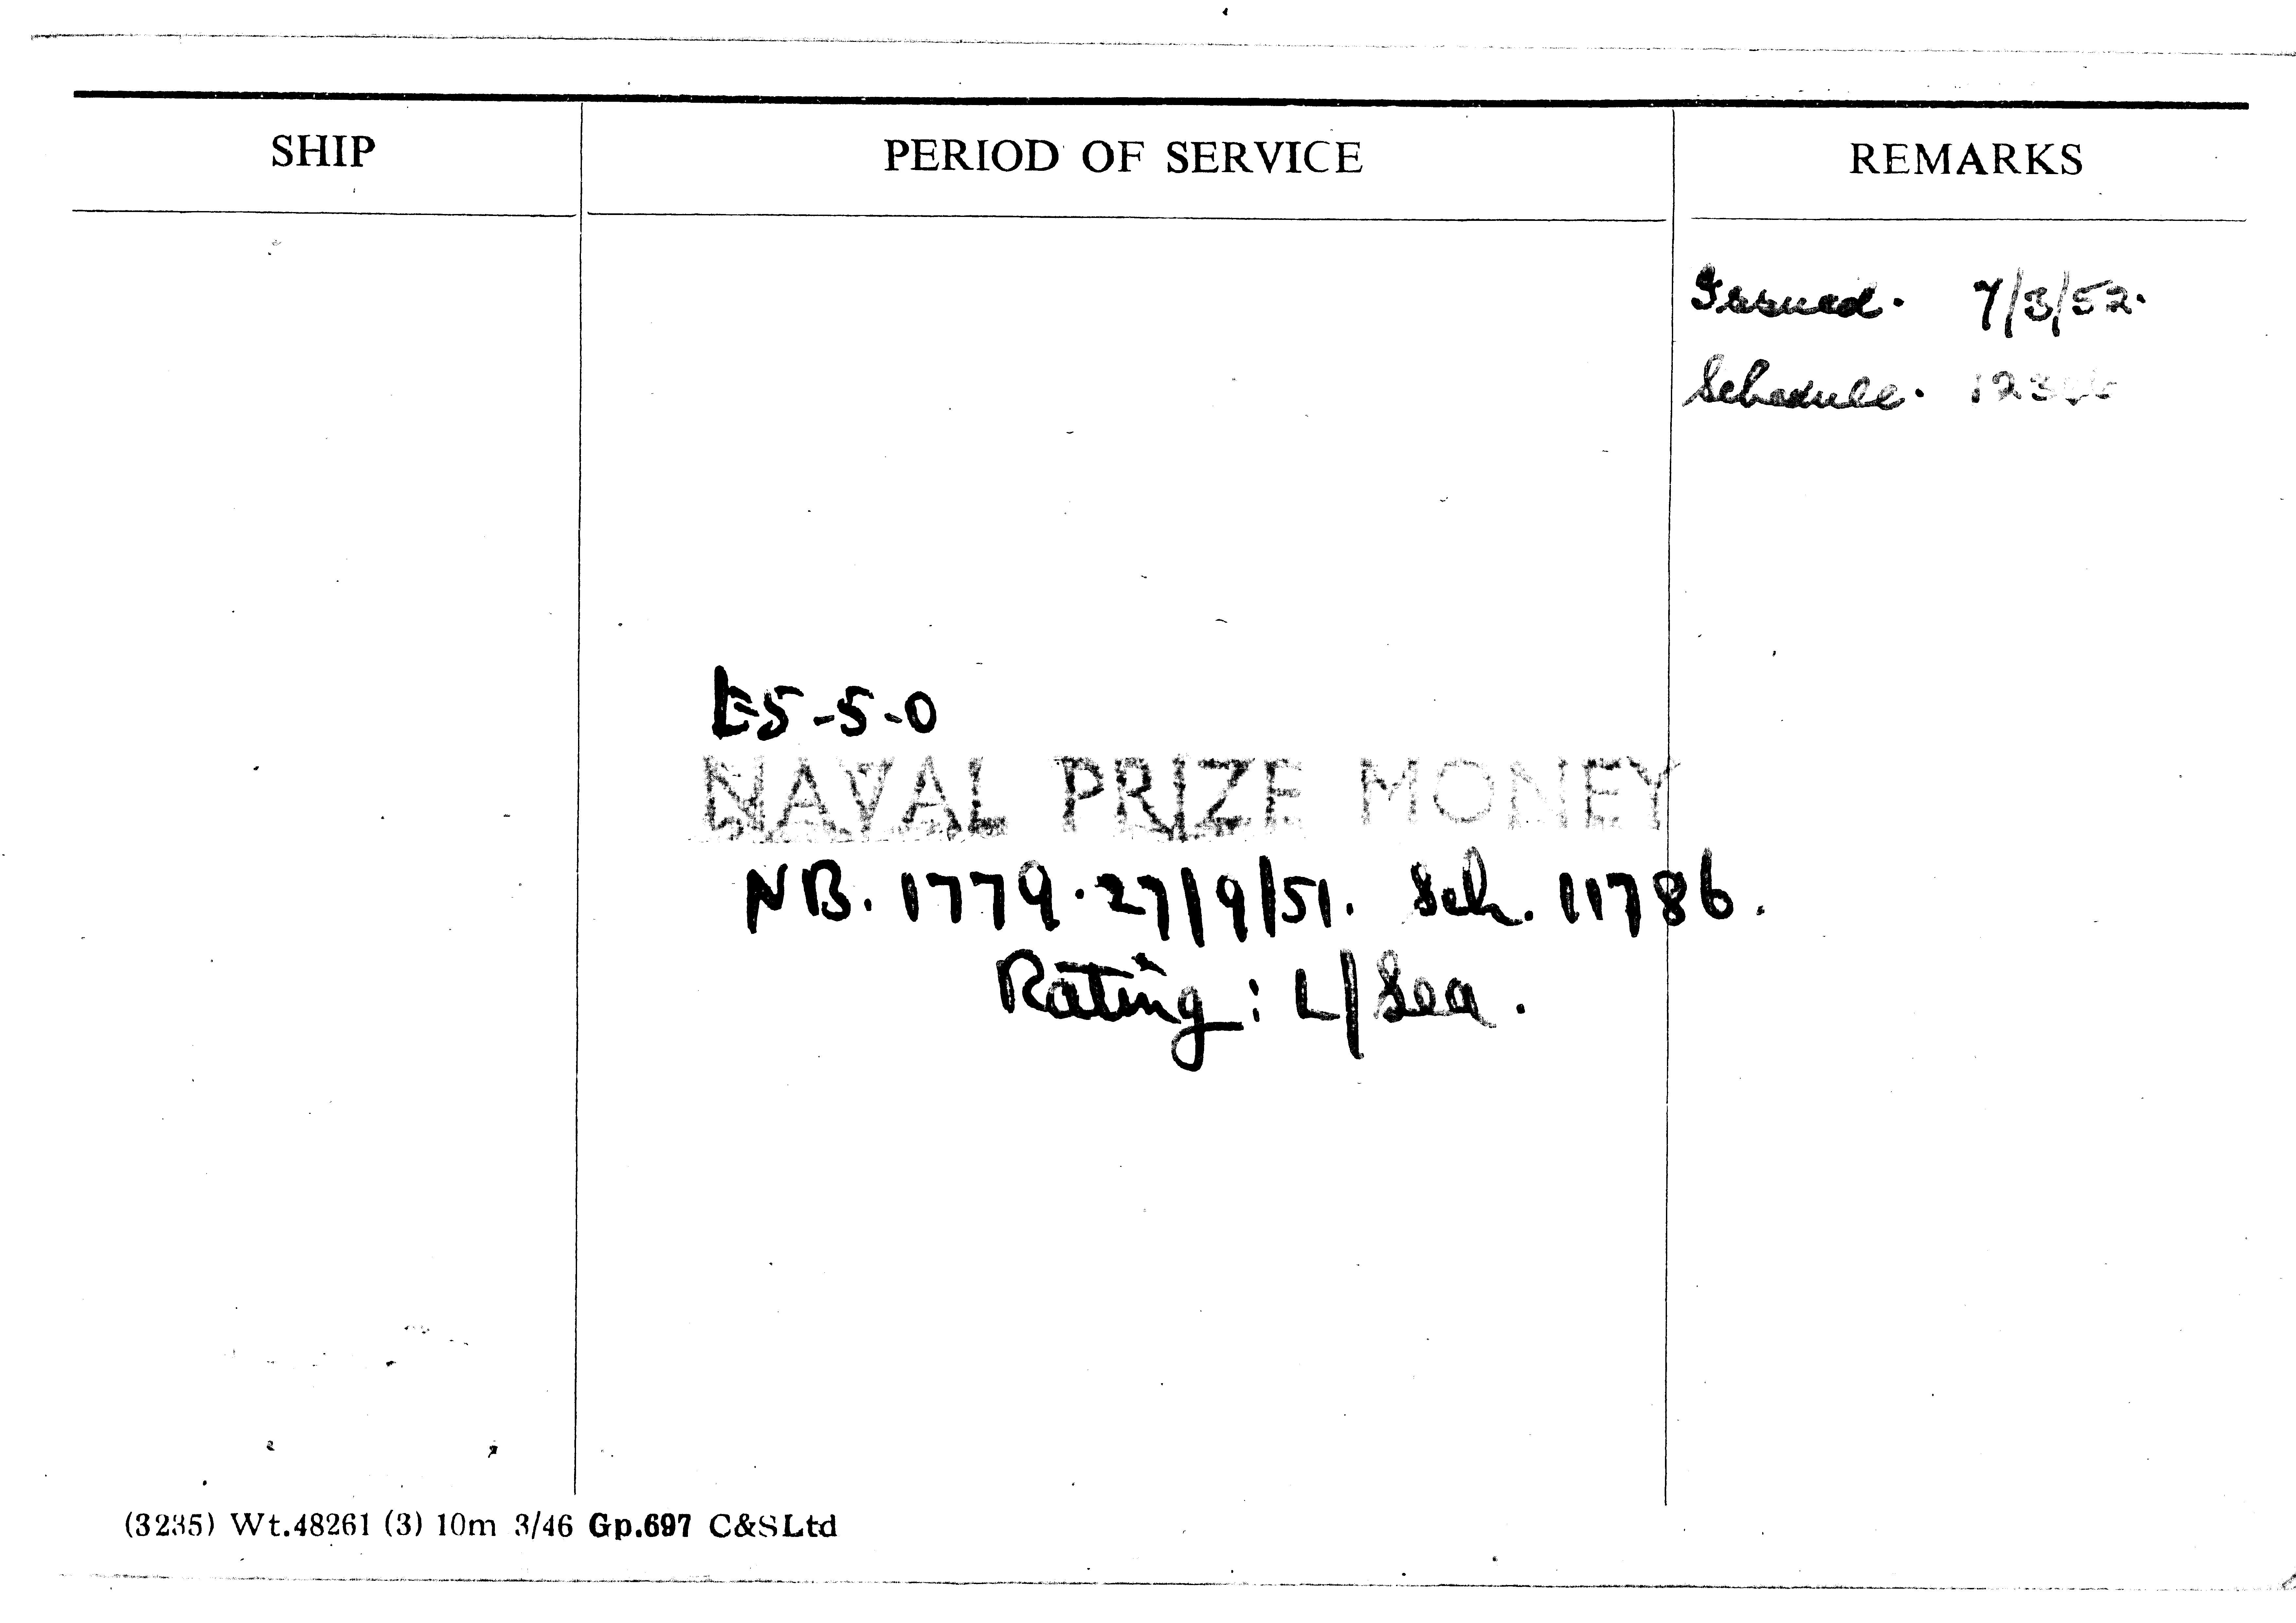 SHIP PERIOD OF SERVICE REMARKS
Issued. 7/3/52.
Schedule.
£5-5-0
NAVAL PRIZE MONEY
NB. 1779. 27/9/51. Sch. 11786.
Rating: L/Sea.
(3235) Wt.48261 (3) 10m 3/46 Gp.697 C&SLtd